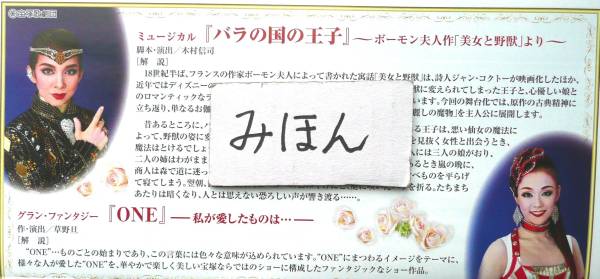 ©宝塚歌劇団
ミュージカル『バラの国の王子』〜ボーモン夫人作「美女と野獣」より〜
脚本・演出/木村信司
[解 説]
18世紀半ば、フランスの作家ボーモン夫人によって書かれた寓話「美女と野獣」は、詩人ジャン・コクトーが映画化したほか、
近年ではディズニーの 獣に変えられてしまった王子と、心優しい娘と
のロマンティックなラ います。今回の舞台化では、原作の古典精神に
立ち返り、単なるお伽 麗しの魔物」を主人公に展開します。
昔あるところに、 る王子は、悪い仙女の魔法に
よって、野獣の姿に変 を見抜く女性と出会うとき、
魔法はとけるでしょ 人には三人の娘がおり、
二人の姉はわがまま あるとき嵐の晩に、
商人は森で道に迷っ べものを平らげ
て寝てしまう。翌朝、 を折る。たちまち
あたりは暗くなり、人とは思えない恐ろしい声が響き渡る……。
みほん
グラン・ファンタジー『ONE』―私が愛したものは…―
作・演出/草野旦
[解 説]
"ONE"…ものごとの始まりであり、この言葉には色々な意味が込められています。"ONE"にまつわるイメージをテーマに、
様々な人が愛した"ONE"を、華やかで楽しく美しい宝塚ならではのショーに構成したファンタジックなショー作品。